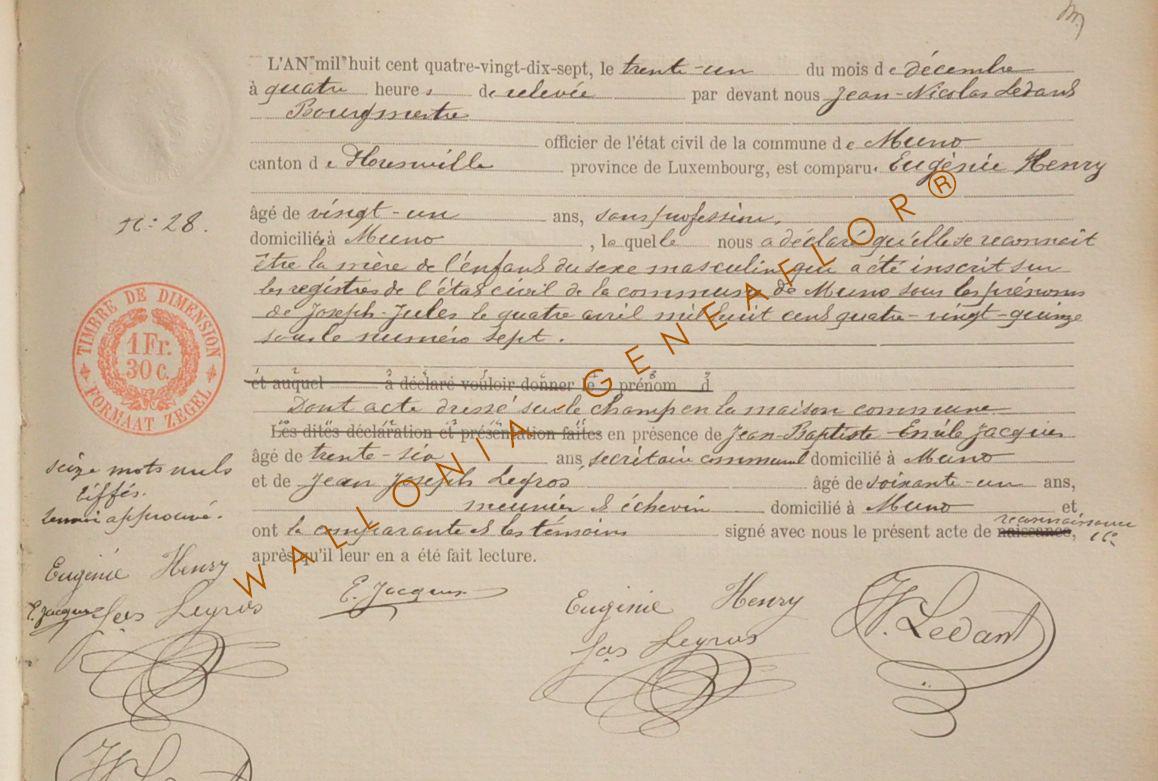 L'AN mil huit cent quatre-vingt-dix-sept, le trente-un du mois de décembre
à quatre heures de relevée par devant nous Jean-Nicolas Ledant
Bourgmestre
officier de l'état civil de la commune de Muno
canton de Florenville province de Luxembourg, est comparue Eugénie Henry
N: 28.
âgé de vingt-un ans, sans profession,
domiciliée à Muno, laquelle nous a déclaré qu'elle se reconnait
être la mère de l'enfant du sexe masculin qui a été inscrit sur
les registres de l'état civil de la commune de Muno sous les prénoms
de Joseph-Jules le quatre avril mil huit cent quatre-vingt-quinze
sous le numéro sept.
TIMBRE DE DIMENSION
1 Fr.
30 c.
FORMAAT ZEGEL
et auquel à déclaré vouloir donner le prénom d
Dont acte dressé sur le champ en la maison commune
Les dites déclaration et présentation faites en présence de Jean-Baptiste-Emile Jacques
âgé de trente-six ans, secrétaire communal domicilié à Muno
et de Jean Joseph Legros âgé de soixante-un ans,
meunier & échevin domicilié à Muno et
ont la comparante & les témoins signé avec nous le présent acte de naissance, reconnaissance
après qu'il leur en a été fait lecture.
seize mots nuls
biffés.
renvoi approuvé.
Eugénie Henry
E. Jacques Jos Legros
E. Jacques
Eugénie Henry
Jos Legros
N. Ledant
WALLONIA-GENEAFLOR®